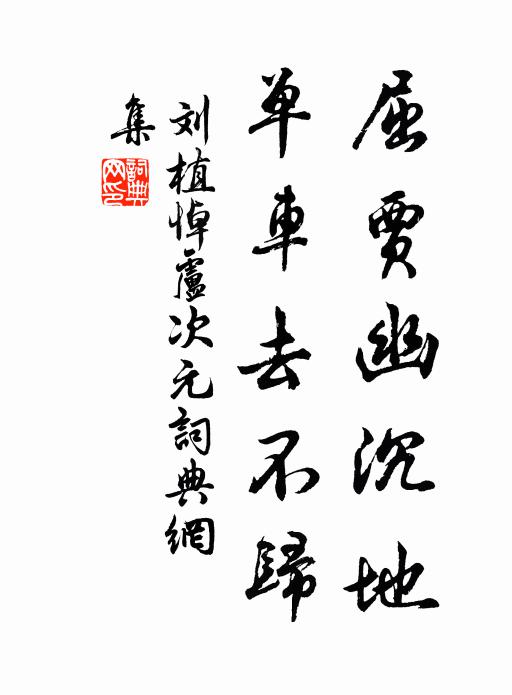 屈賈幽沉地
单車去不歸
刘植悼盧次元詞典網
集
詞典
网印